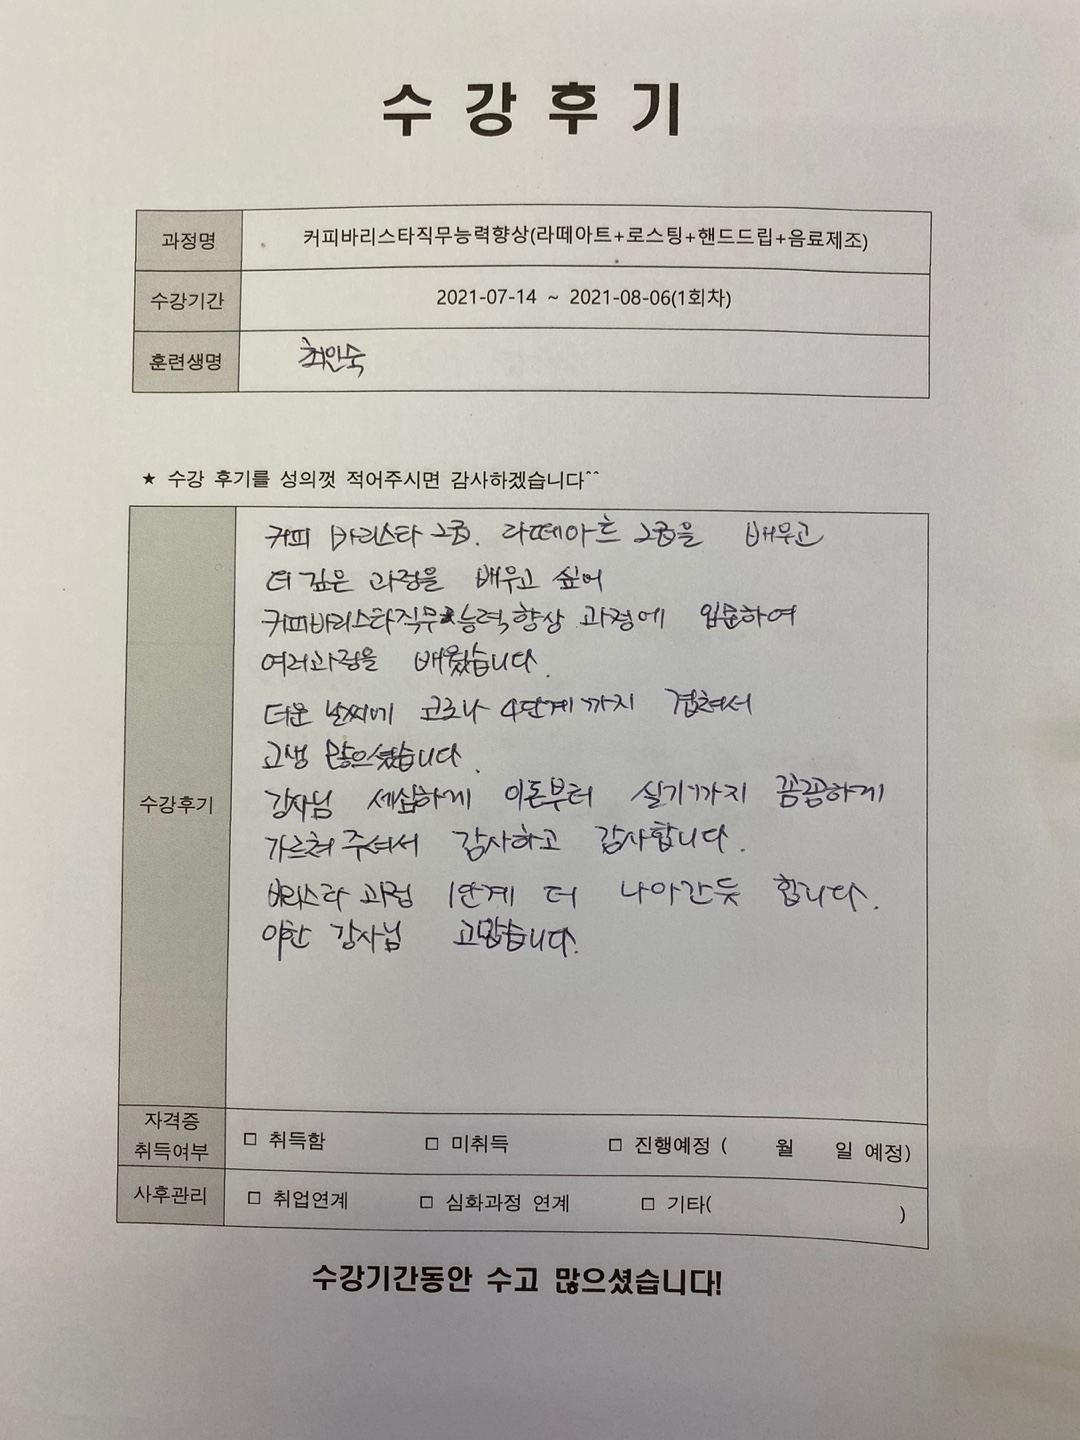 수강후기
과정명 커피바리스타직무능력향상(라떼아트+로스팅+핸드드립+음료제조)
수강기간 2021-07-14 ~ 2021-08-06(1회차)
훈련생명 최인숙
★ 수강 후기를 성의껏 적어주시면 감사하겠습니다^^
수강후기
커피 바리스타 2급. 라떼아트 2급을 배우고
더 깊은 과정을 배우고 싶어
커피바리스타직무능력향상 과정에 입문하여
여러과정을 배웠습니다.
더운 날씨에 코로나 4단계까지 겹쳐서
고생 많으셨습니다.
강사님 세심하게 이론부터 실기까지 꼼꼼하게
가르쳐 주셔서 감사하고 감사합니다.
바리스타 과정 1단계 더 나아간듯 합니다.
강사님 고맙습니다.
자격증 취득여부 □ 취득함 □ 미취득 □ 진행예정 ( 월 일 예정)
사후관리 □ 취업연계 □ 심화과정 연계 □ 기타( )
수강기간동안 수고 많으셨습니다!